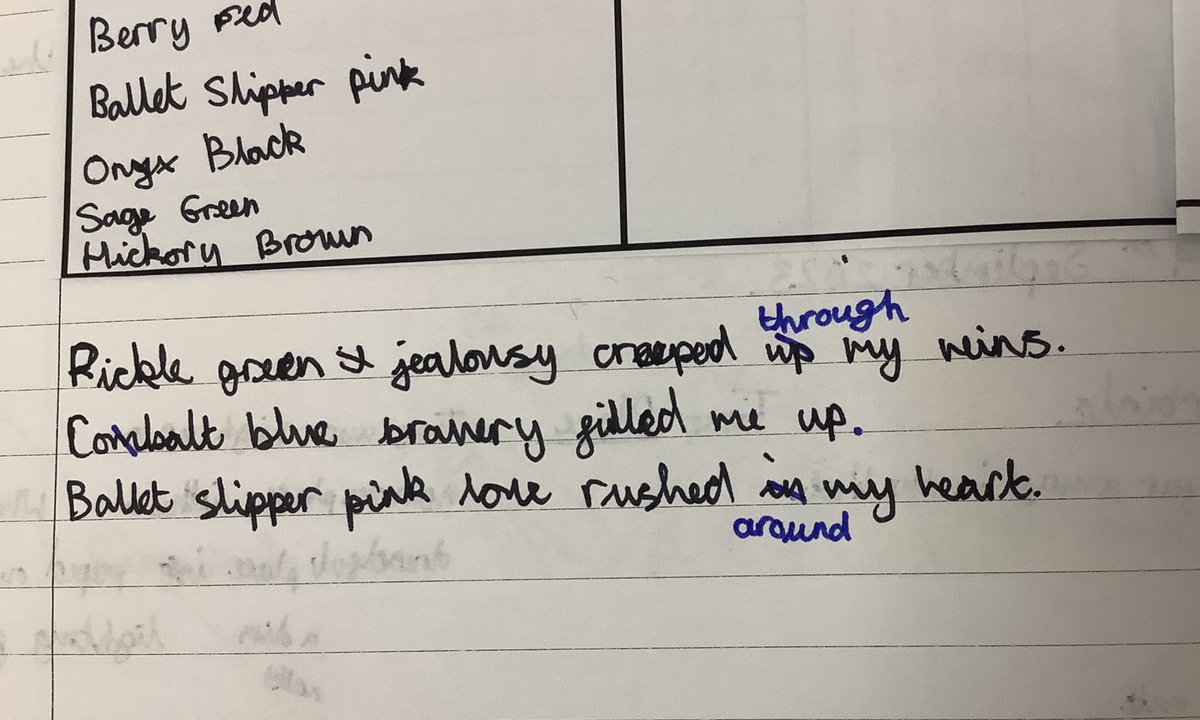 Berry red
Ballet Slipper pink
Onyx Black
Sage Green
Hickory Brown
through
Pickle green jealousy creeped up my veins.
Cobalt blue bravery filled me up.
Ballet slipper pink love rushed in my heart.
around